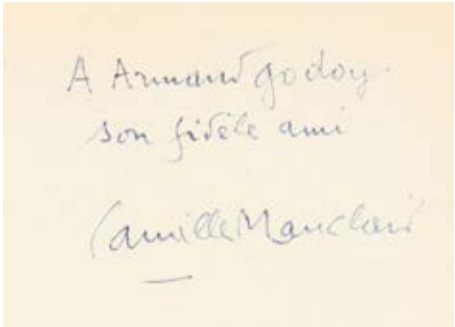 A Armand Godoy
son fidèle ami
Camille Mauclair